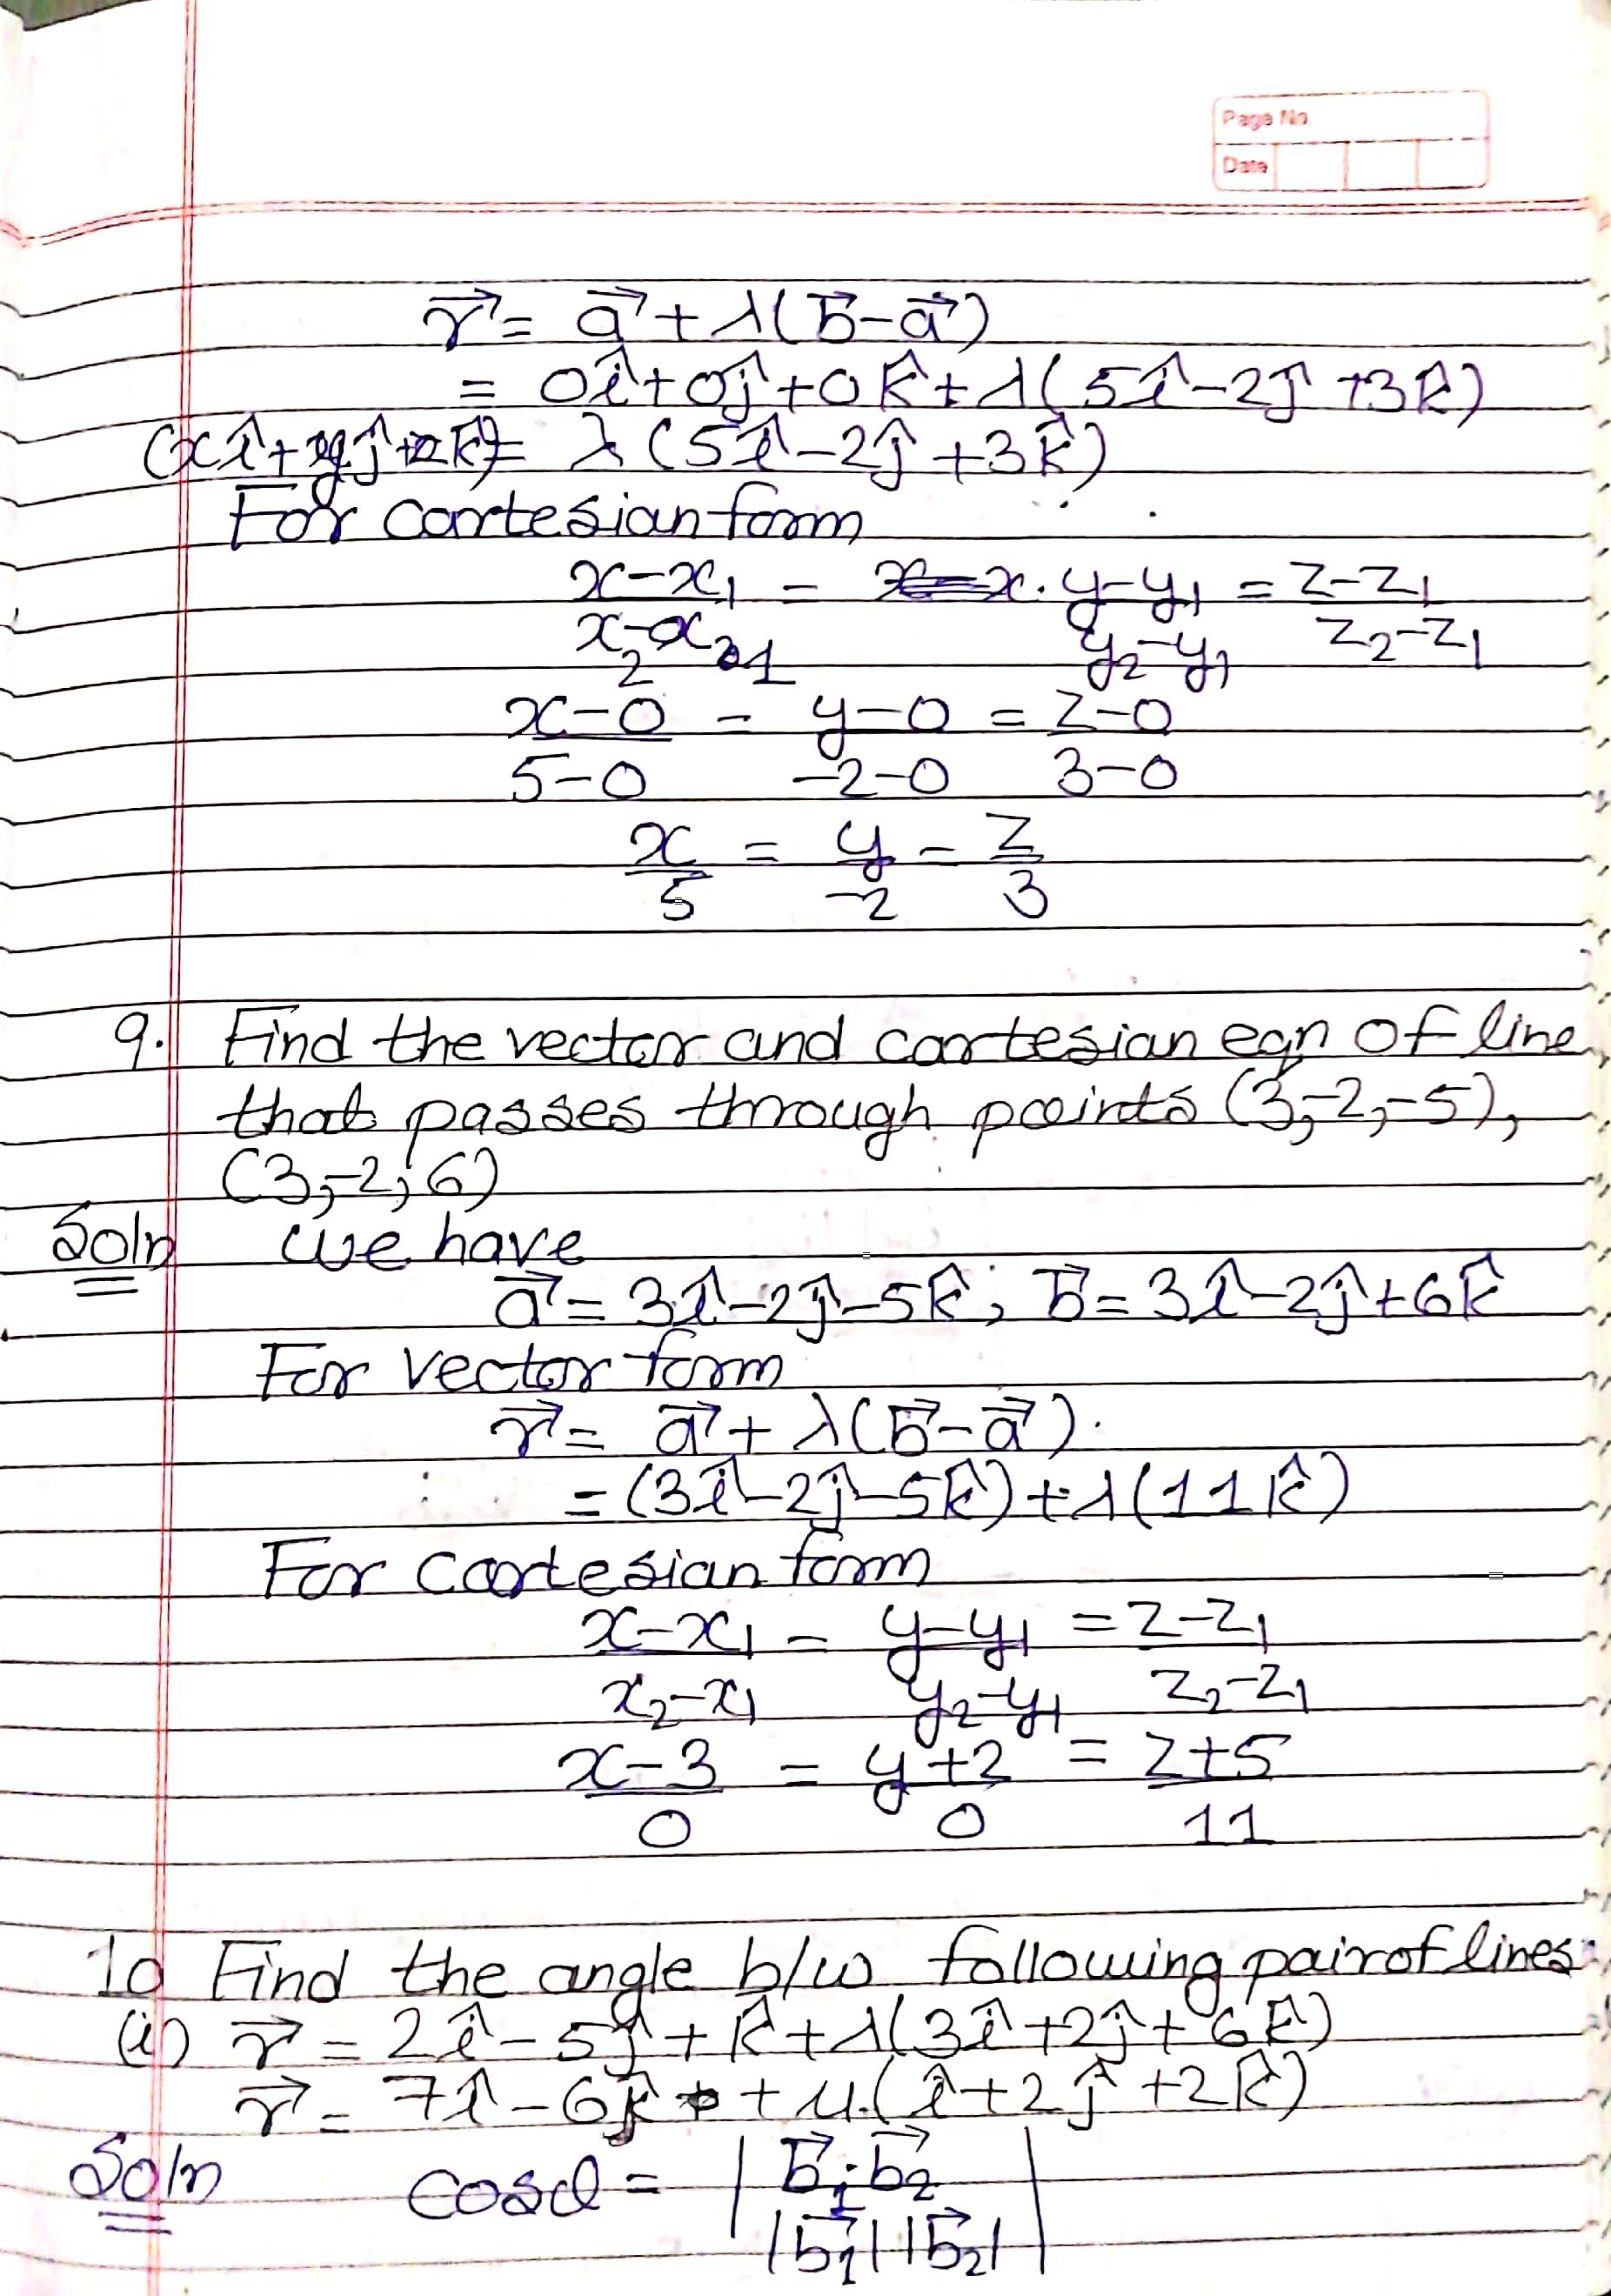 Page No.
Date
r⃗ = a⃗ + λ(b⃗ - a⃗)
= 0î + 0ĵ + 0k̂ + λ(5î - 2ĵ + 3k̂)
(xî + yĵ + zk̂) = λ(5î - 2ĵ + 3k̂)
For cartesian form
x - x₁ = y - y₁ = z - z₁
x₂ - x₁ y₂ - y₁ z₂ - z₁
x - 0 = y - 0 = z - 0
5 - 0 -2 - 0 3 - 0
x = y = z
5 -2 3
9. Find the vector and cartesian eqn of line
that passes through points (3, -2, -5),
(3, -2, 6)
Soln we have
a⃗ = 3î - 2ĵ - 5k̂, b⃗ = 3î - 2ĵ + 6k̂
For vector form
r⃗ = a⃗ + λ(b⃗ - a⃗).
= (3î - 2ĵ - 5k̂) + λ(11k̂)
For cartesian form
x - x₁ = y - y₁ = z - z₁
x₂ - x₁ y₂ - y₁ z₂ - z₁
x - 3 = y + 2 = z + 5
0 0 11
10 Find the angle b/w following pair of lines:
(i) r⃗ = 2î - 5ĵ + k̂ + λ(3î + 2ĵ + 6k̂)
r⃗ = 7î - 6k̂ + μ(î + 2ĵ + 2k̂)
Soln cosα = | b⃗₁·b⃗₂ |
|b⃗₁||b⃗₂|